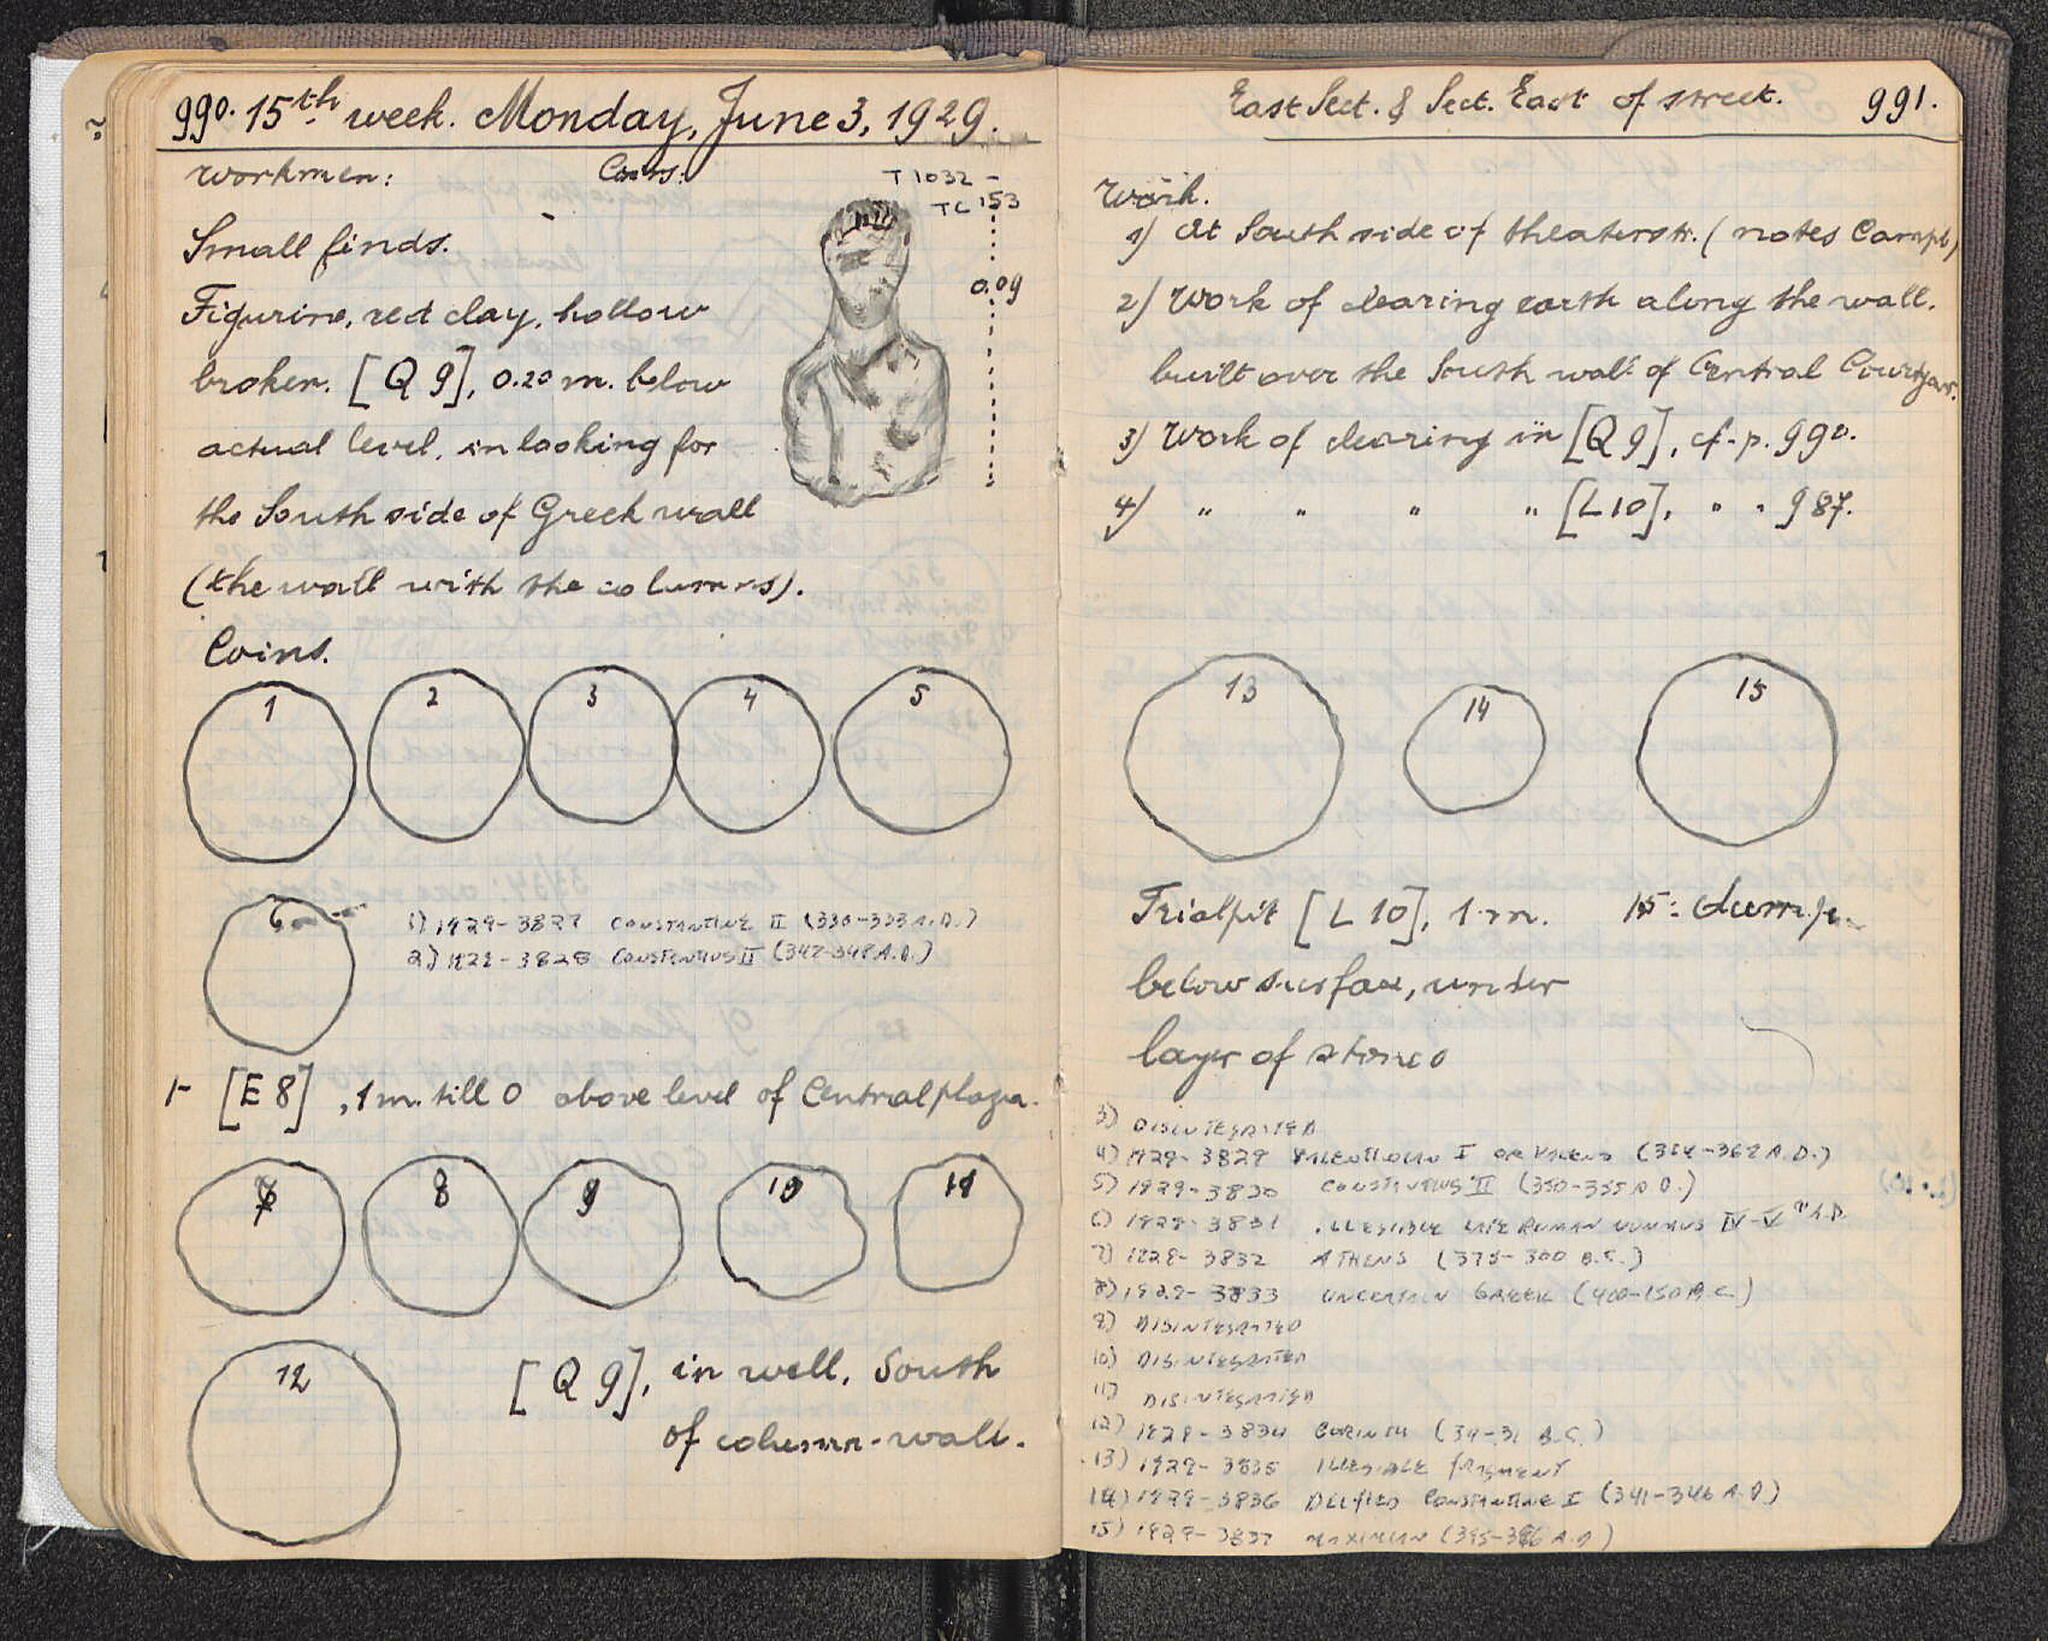 990. 15th week. Monday, June 3, 1929.
Workmen: Coins:
T 1032 -
TC 153
Small finds.
0.09
Figurine, red clay, hollow
broken. [Q 9], 0.20 m. below
actual level, in looking for
the South side of Greek wall
(the wall with the columns).
Coins.
1 2 3 4 5
6
1) 1929-3827 CONSTANTINE II (330-333 A.D.)
2) 1929-3828 CONSTANTIUS II (342-348 A.D.)
[E 8], 1 m. till 0 above level of Central plaza.
7 8 9 10 11
12
[Q 9], in well, South
of column-wall.
East Sect. & Sect. East of street. 991.
Work.
1) At South side of theaterstr. (notes Campb)
2) Work of clearing earth along the wall.
built over the South wall of Central Courtyar.
3) Work of clearing in [Q 9], cf. p. 990.
4) " " " " [L 10], " " 987.
13 14 15
Trialpit [L 10], 1 m. 15: dump.
below surface, under
layer of stones
3) DISINTEGRATED
4) 1929-3829 VALENTINIAN I OR VALENS (364-367 A.D.)
5) 1929-3830 CONSTANTIUS II (350-355 A.D.)
6) 1929-3831 ILLEGIBLE LATE ROMAN NUMMUS IV-V A.D.
7) 1929-3832 ATHENS (375-300 B.C.)
8) 1929-3833 UNCERTAIN GREEK (400-150 B.C.)
9) DISINTEGRATED
10) DISINTEGRATED
11) DISINTEGRATED
12) 1929-3834 CORINTH (34-31 B.C.)
13) 1929-3835 ILLEGIBLE FRAGMENT
14) 1929-3836 DEIFIED CONSTANTINE I (341-346 A.D)
15) 1929-3837